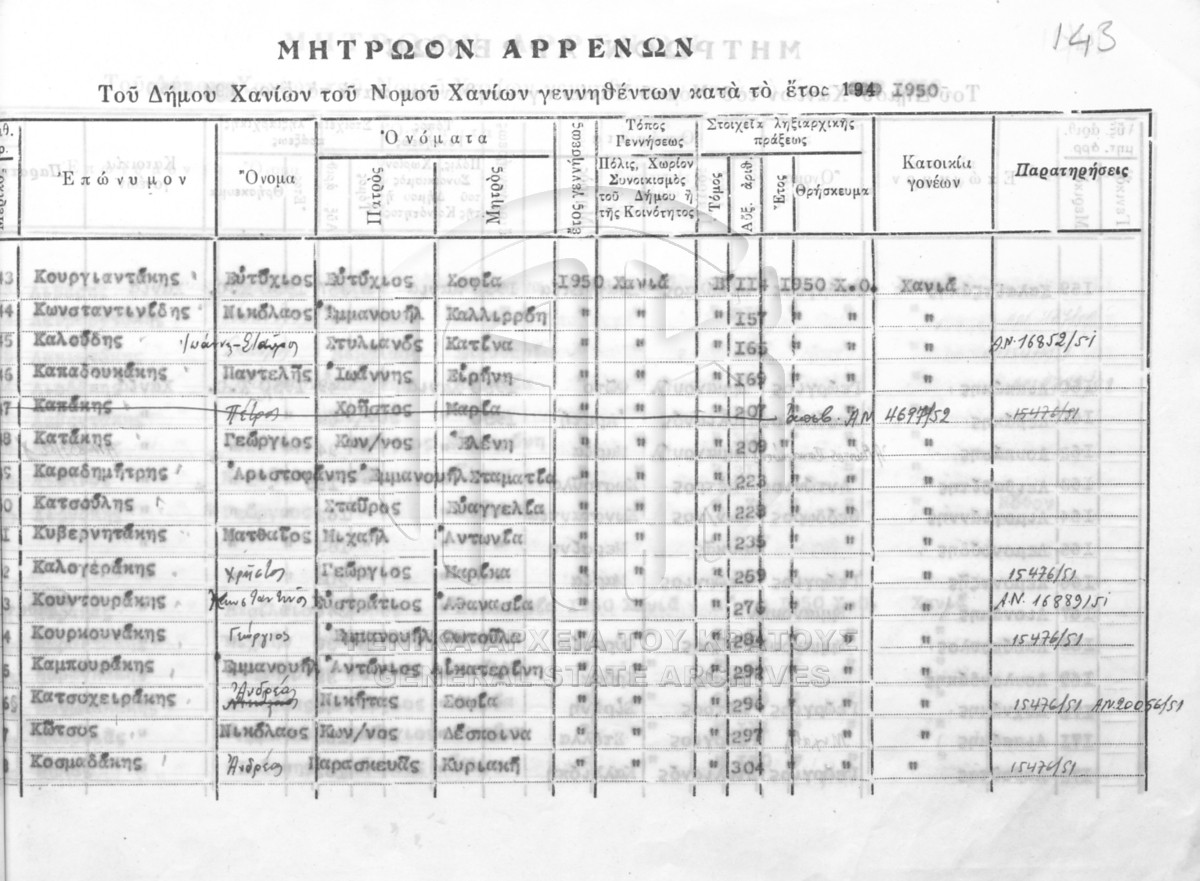 143
ΜΗΤΡΩΟΝ ΑΡΡΕΝΩΝ
Τοῦ Δήμου Χανίων τοῦ Νομοῦ Χανίων γεννηθέντων κατὰ τὸ ἔτος 194 1950
Ἐπώνυμον Ὄνομα Ὀνόματα Πατρὸς Μητρὸς Ἔτος γεννήσεως Τόπος Γεννήσεως Πόλις, Χωρίον Συνοικισμὸς τοῦ Δήμου ἢ τῆς Κοινότητος Στοιχεῖα ληξιαρχικῆς πράξεως Τόμος Αὔξ. ἀριθ. Ἔτος Θρήσκευμα Κατοικία γονέων Παρατηρήσεις
43 Κουργιαντάκης Εὐτύχιος Εὐτύχιος Σοφία 1950 Χανιά Β 114 1950 Χ.Ο. Χανιά
44 Κωνσταντινίδης Νικόλαος Ἐμμανουήλ Καλλιρρόη " " " 157 " " "
45 Καλούδης Ἰωάννης-Σταῦρος Στυλιανὸς Κατίνα " " " 165 " " " ΑΝ.16852/51
46 Καπαδουκάκης Παντελῆς Ἰωάννης Εἰρήνη " " " 169 " " "
47 Καπάκης Πέτρος Χρῆστος Μαρία " " " 207 ἀπεβ. ΑΝ 4697/52 15476/51
48 Κατάκης Γεώργιος Κων/νος Ἑλένη " " " 209 " " "
Καραδημήτρης Ἀριστοφάνης Ἐμμανουήλ Σταματία " " " 223 " " "
50 Κατσούλης Σταῦρος Εὐαγγελία " " " 228 " " "
51 Κυβερνητάκης Ματθαῖος Μιχαήλ Ἀντωνία " " " 235 " " "
2 Καλογεράκης Χρῆστος Γεώργιος Μαρίκα " " " 269 " " " 15476/51
3 Κουντουράκης Κωνσταντῖνος Εὐστράτιος Ἀθανασία " " " 276 " " " Α.Ν. 16889/51
4 Κουρκουνάκης Γεώργιος Ἐμμανουήλ Φωτούλα " " " 284 " " " 15476/51
5 Καμπουράκης Ἐμμανουήλ Ἀντώνιος Αἰκατερίνη " " " 292 " " "
56 Κατσυχειράκης Ἀνδρέας Νικήτας Σοφία " " " 296 " " " 15476/51 ΑΝ.20056/51
7 Κῶτσος Νικόλαος Κων/νος Δέσποινα " " " 297 " " "
8 Κοσμαδάκης Ἀνδρέας Παρασκευᾶς Κυριακή " " " 304 " " " 15476/51
ΓΕΝΙΚΑ ΑΡΧΕΙΑ ΤΟΥ ΚΡΑΤΟΥΣ
GENERAL STATE ARCHIVES